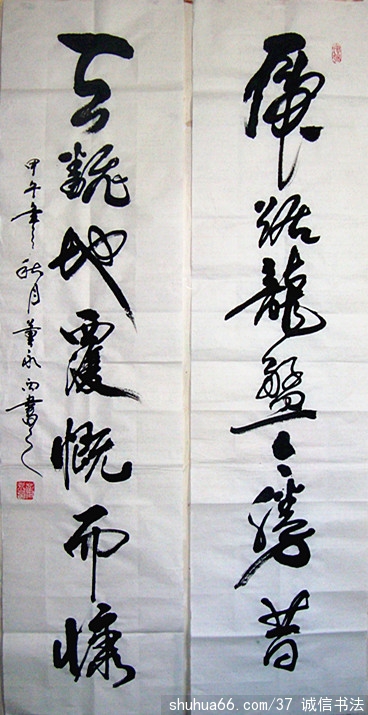 虎踞龍盤今勝昔
天翻地覆慨而慷
甲午年秋月董永西書之
shuhua66.com/37 诚信书法